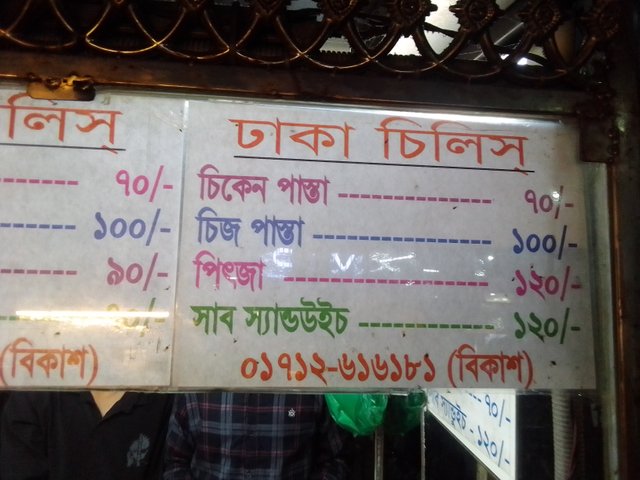 লিস্
৭০/-
১০০/-
৯০/-
(বিকাশ)
ঢাকা চিলিস্
চিকেন পাস্তা ---------------- ৭০/-
চিজ পাস্তা ------------------ ১০০/-
পিৎজা --------------------- ১২০/-
সাব স্যান্ডউইচ -------------- ১২০/-
০১৭১২-৬১৬১৮১ (বিকাশ)
৭০/-
স্যান্ডুইচ -১২০/-